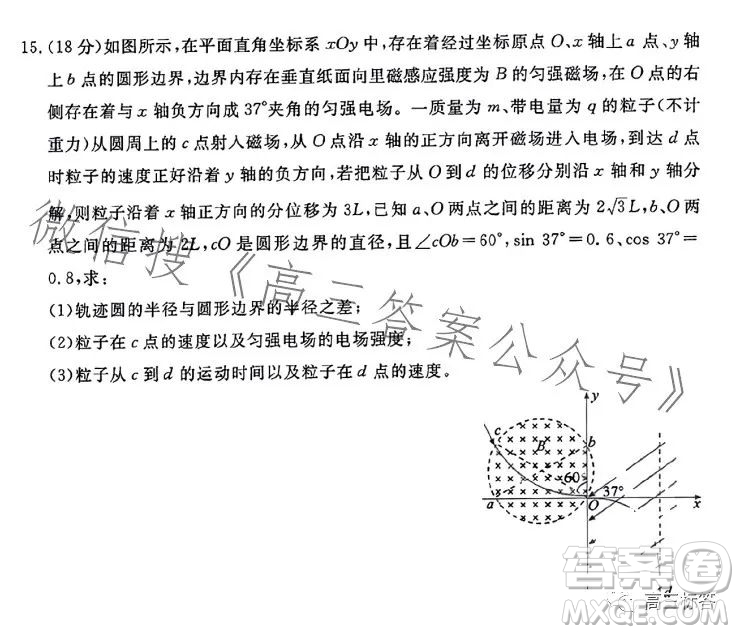 15.(18分)如图所示,在平面直角坐标系 xOy 中,存在着经过坐标原点 O、x 轴上 a 点、y 轴
上 b 点的圆形边界,边界内存在垂直纸面向里磁感应强度为 B 的匀强磁场,在 O 点的右
侧存在着与 x 轴负方向成 37°夹角的匀强电场。一质量为 m、带电量为 q 的粒子(不计
重力)从圆周上的 c 点射入磁场,从 O 点沿 x 轴的正方向离开磁场进入电场,到达 d 点
时粒子的速度正好沿着 y 轴的负方向,若把粒子从 O 到 d 的位移分别沿 x 轴和 y 轴分
解,则粒子沿着 x 轴正方向的分位移为 3L,已知 a、O 两点之间的距离为 2√3L,b、O 两
点之间的距离为 2L,cO 是圆形边界的直径,且∠cOb=60°,sin 37°=0.6、cos 37°=
0.8,求:
(1)轨迹圆的半径与圆形边界的半径之差;
(2)粒子在 c 点的速度以及匀强电场的电场强度;
(3)粒子从 c 到 d 的运动时间以及粒子在 d 点的速度。
微信搜《高三答案公众号》
y
c
B
b
60
37°
a
O
x
d
高三标答
答案圈
MXQE.COM